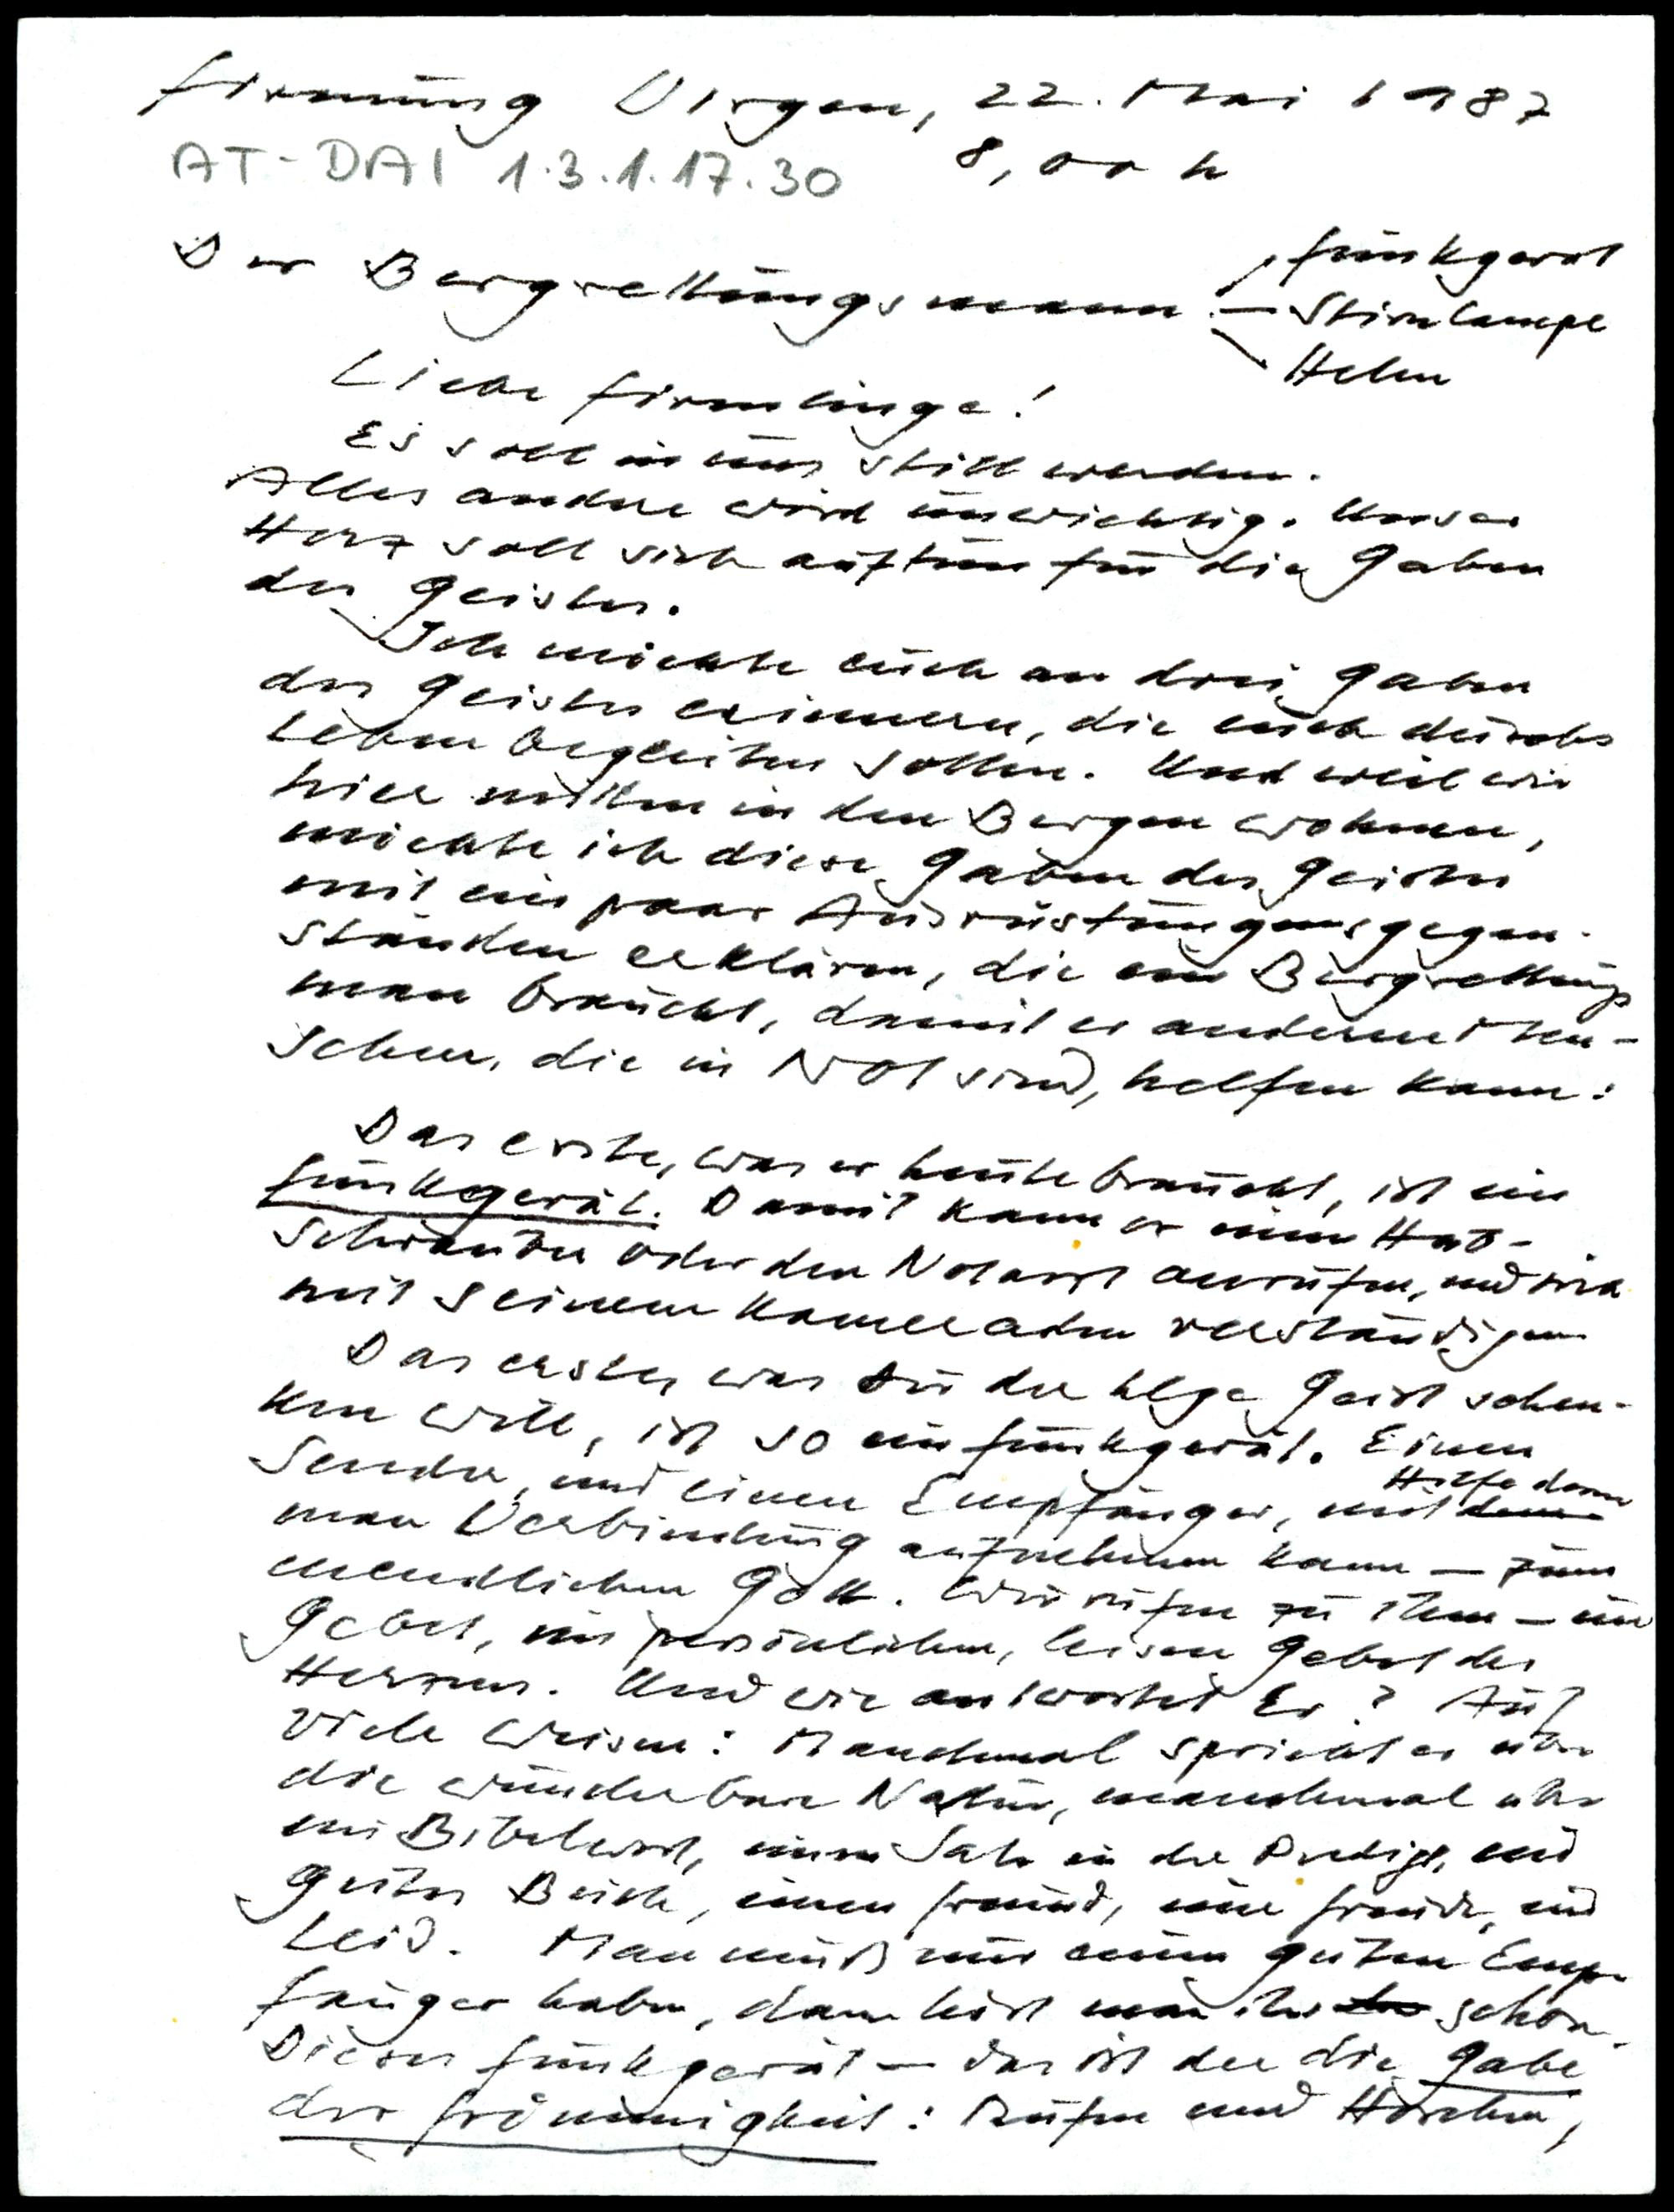 Firmung Virgen, 22. Mai 1987
AT-DAI 1.3.1.17.30 8,00 h
Funkgerät
Der Bergrettungsmann — Stirnlampe
Helm
Liebe Firmlinge!
Es soll in uns still werden.
Alles andere wird unwichtig. Unser
Herz soll sich auftun für die Gaben
des Geistes.
Ich möchte euch an drei Gaben
des Geistes erinnern, die euch durchs
Leben begleiten sollen. Und weil wir
hier mitten in den Bergen wohnen,
möchte ich diese Gaben des Geistes
mit ein paar Ausrüstungsgegen-
ständen erklären, die ein Bergrettungs
mann braucht, damit er anderen Men-
schen, die in Not sind, helfen kann:
Das erste, was er heute braucht, ist ein
Funkgerät. Damit kann er einen Hub-
schrauber oder den Notarzt anrufen, und sich
mit seinen Kameraden verständigen
Das erste, was der hlge Geist schen-
ken will, ist so ein Funkgerät. Einen
Sender und einen Empfänger, mit Hilfe deren
man Verbindung aufnehmen kann — zum
unendlichen Gott. Wir rufen zu Ihm — im
Gebet, im persönlichen, leisen Gebet des
Herzens. Und wie antwortet Er? Auf
viele Weisen: Manchmal spricht er über
die wunderbare Natur, manchmal über
ein Bibelwort, einen Satz in der Predigt, ein
gutes Buch, einen Freund, eine Freude, ein
Leid. Man muß nur einen guten Emp-
fänger haben, dann hört man ihn schon.
Dieses Funkgerät — das ist die Gabe
der Frömmigkeit: Rufen und Horchen,